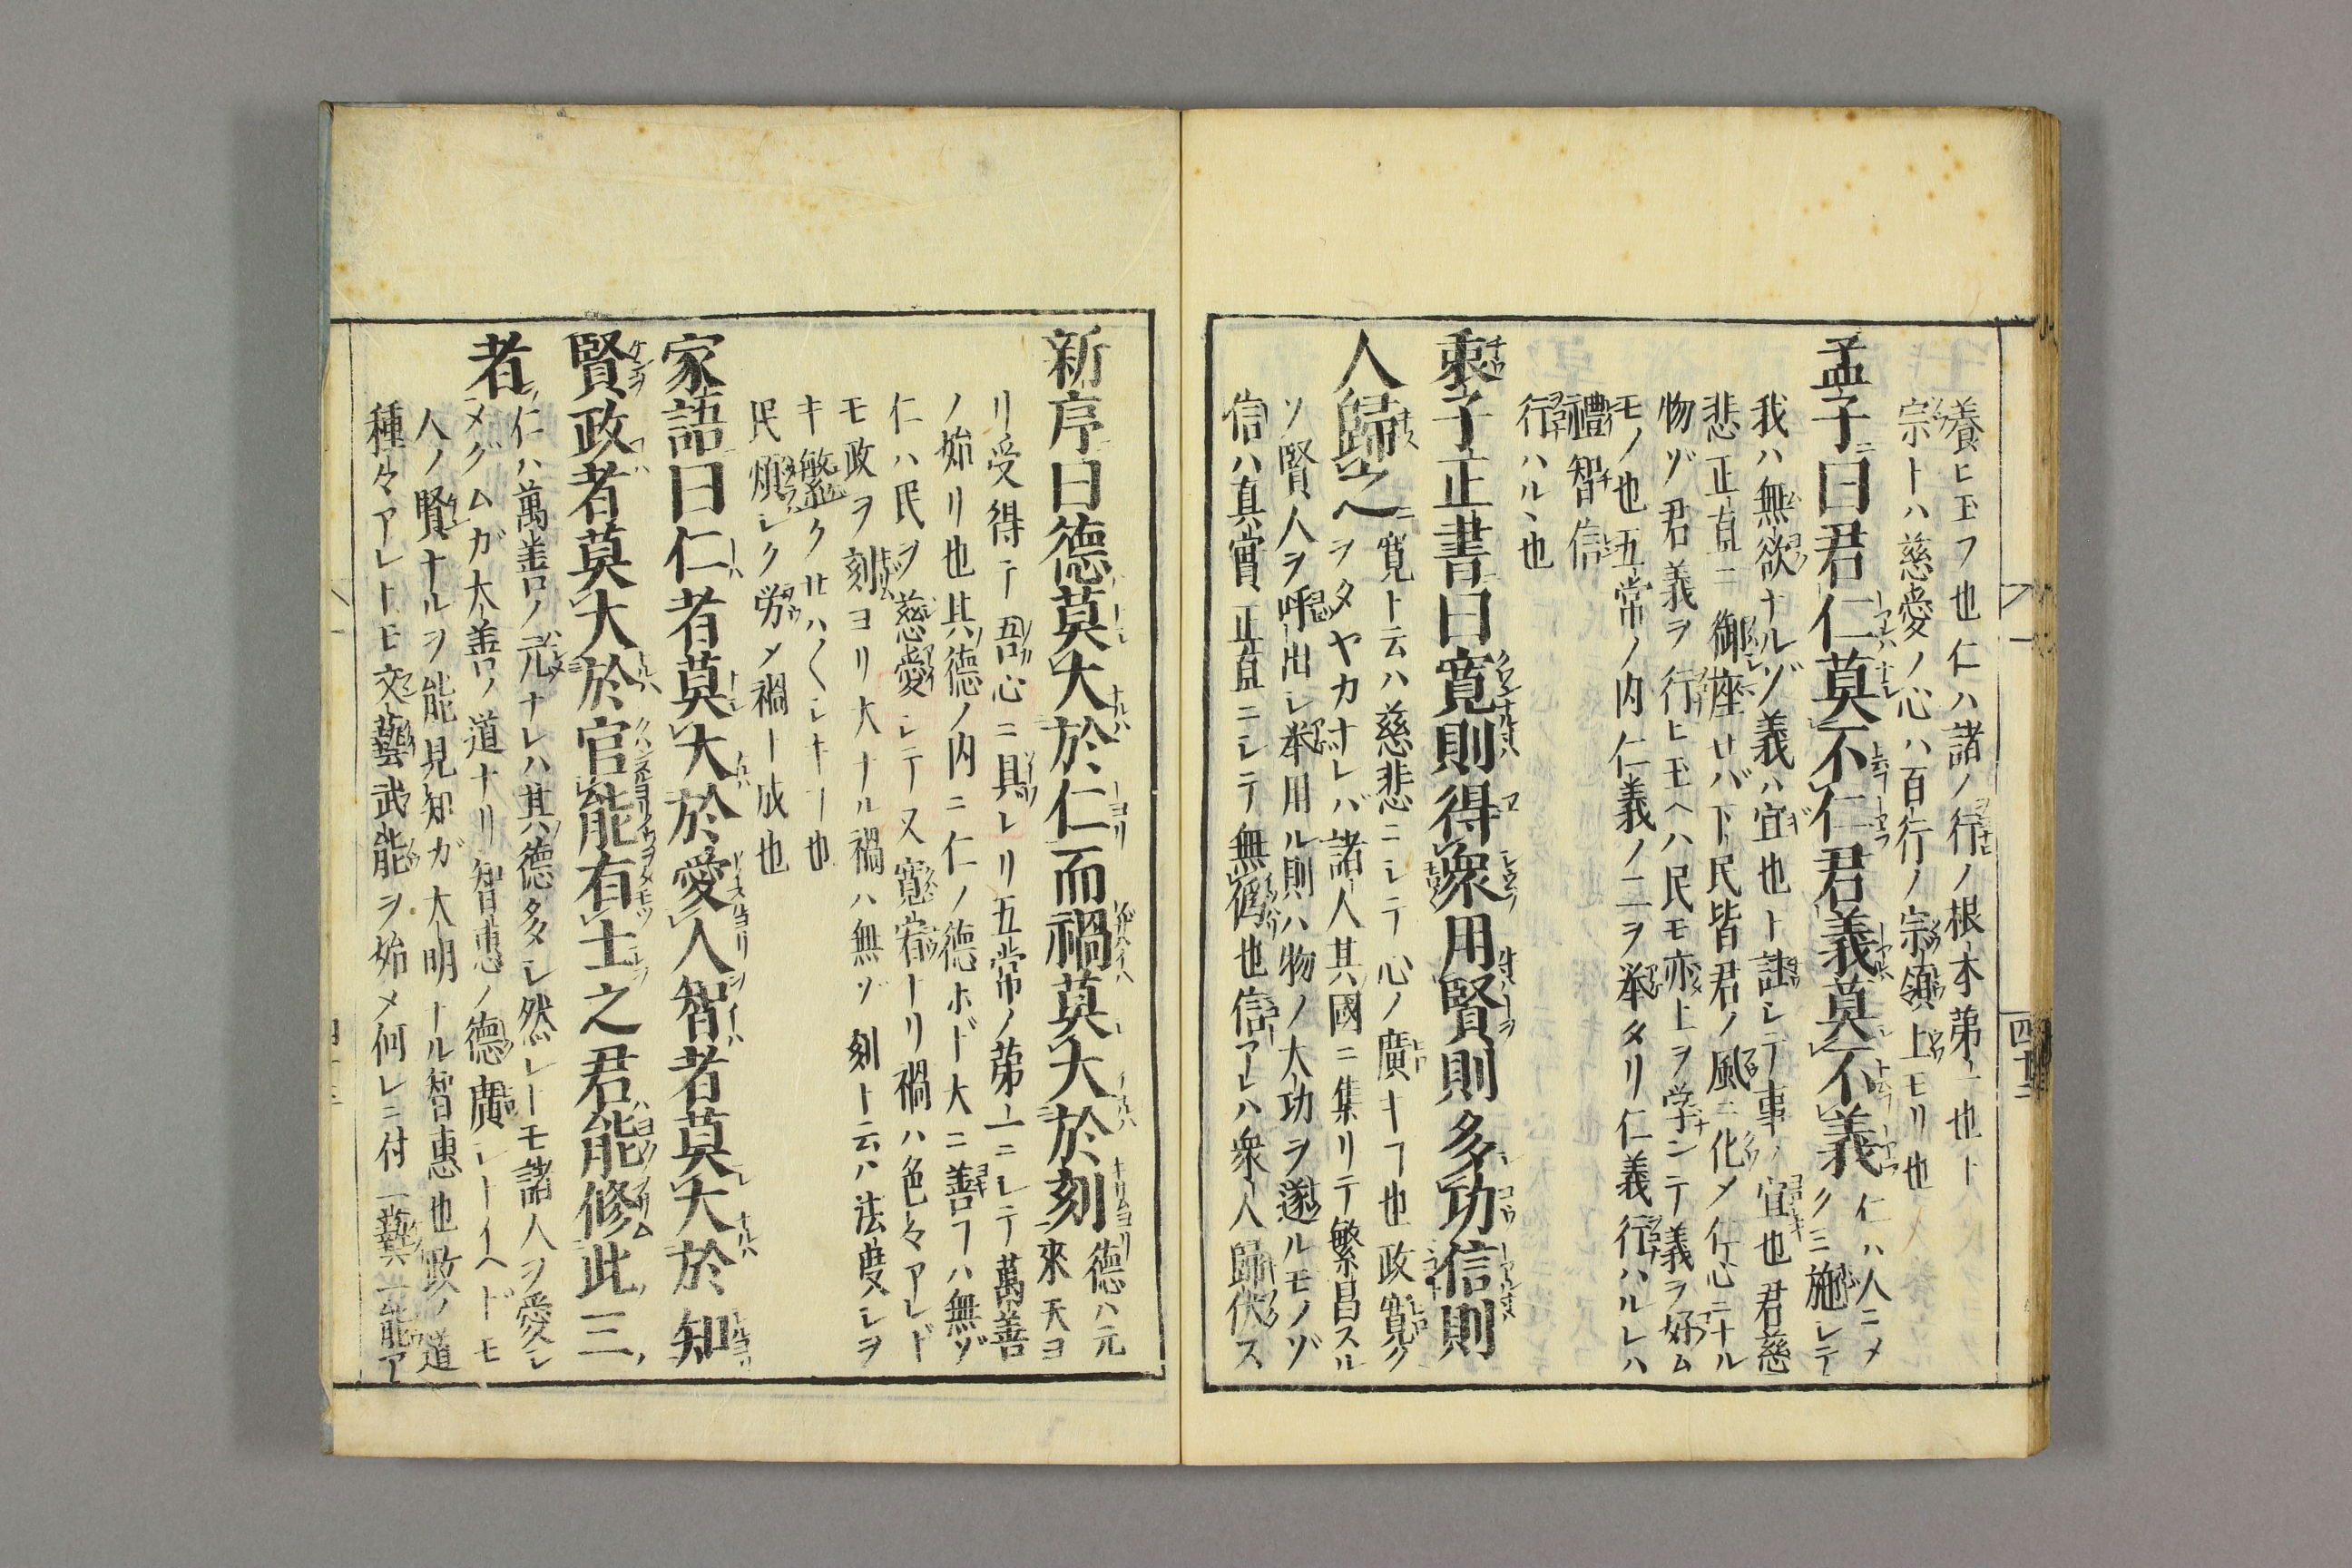 養ヒ玉フ也仁ハ諸ノ行ノ根本第一也ト
宗トハ慈愛ノ心ハ百行ノ宗領上モリ也
孟子曰君仁莫不仁君義莫不義
仁ハ人ニメ
クミ施シテ
我ハ無欲ナルゾ義ハ宜也ト註シテ事ノ宜也君慈
悲正直ニ御座セバ下民皆君ノ風ニ化メ仁心ニナル
物ゾ君義ヲ行ヒ玉ヘハ民モ亦上ヲ学ンテ義ヲ好ム
モノ也五常ノ内仁義ノ二ヲ挙タリ仁義行ハルレハ
禮智信
行ハルヽ也
東子正書曰寛則得衆用賢則多功信則
人歸之
寛ト云ハ慈悲ニシテ心ノ廣キヿ也政寛ク
ヘヲタヤカナレバ諸人其國ニ集リテ繁昌スル
ソ賢人ヲ呼出シ挙用ル則ハ物ノ大功ヲ遂ルモノゾ
信ハ真實正直ニシテ無偽也信アレハ衆人歸伏ス
新序曰德莫大於仁而禍莫大於刻
德ハ元
来天ヨ
リ受得テ吾心ニ具レリ五常ノ第一ニシテ萬善
ノ始リ也其德ノ内ニ仁ノ德ホド大ニ善ヿハ無ゾ
仁ハ民ヲ慈愛シテ又寛宥ナリ禍ハ色々アレド
モ政ヲ刻ヨリ大ナル禍ハ無ゾ刻ト云ハ法度シヲ
キ繁クせハ〱シキヿ也
民煩シク労メ禍ト成也
家語曰仁者莫大於愛人智者莫大於知
賢政者莫大於官能有土之君能修此三
者
仁ハ萬善ノ元ナレハ其德多シ然レトモ諸人ヲ愛シ
メグムガ大善ノ道ナリ智恵ノ德廣シトイヘドモ
人ノ賢ナルヲ能見知ガ大明ナル智惠也政ノ道
種々アレトモ文藝武能ヲ始メ何レニ付一藝一能ア
四十二